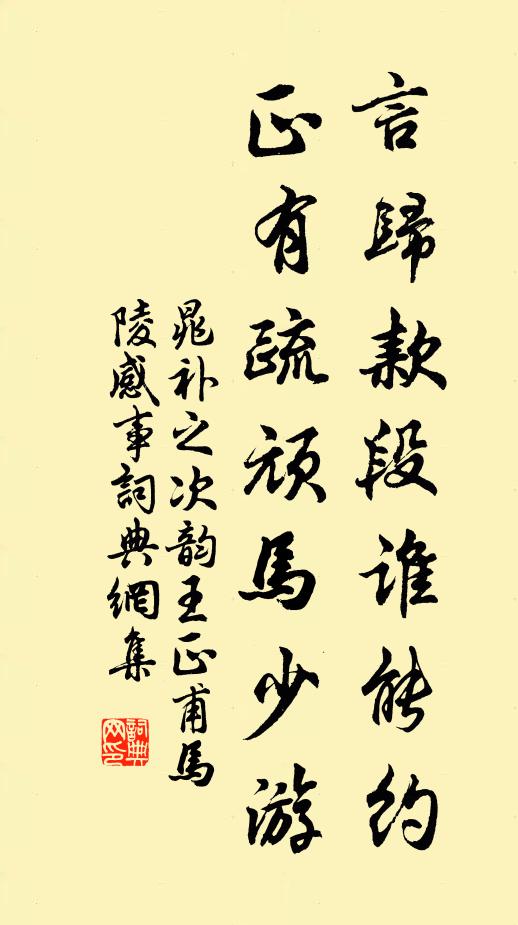 言歸款段誰能約
正有疏頑馬少游
晁补之次韵王正甫馬
陵感事詞典網集
詞典
网印